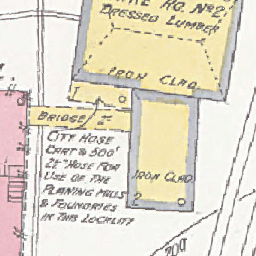 HO. No 2,
DRESSED LUMBER
IRON CLAD
1
BRIDGE 2"
CITY HOSE
CART & 500'
2½" HOSE FOR
USE OF THE
PLANING MILLS
& FOUNDRIES
IN THIS LOCALITY
IRON CLAD
2
200